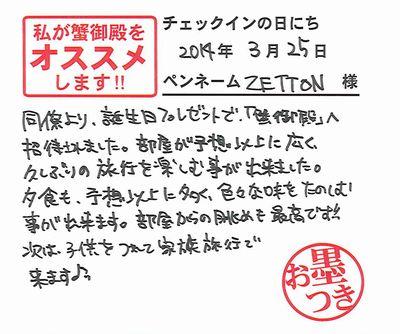 私が蟹御殿を
オススメ
します!!
チェックインの日にち
2014年 3月 25日
ペンネーム ZETTON 様
同僚より、誕生日プレゼントで、「蟹御殿」へ
招待されました。部屋が予想以上に広く、
久しぶりの旅行を楽しむ事が出来ました。
夕食も、予想以上に多く、色々な味をたのしむ
事が出来ます。部屋からの眺めも最高です!!
次は、子供をつれて家族旅行で
来ます♪
お墨つき